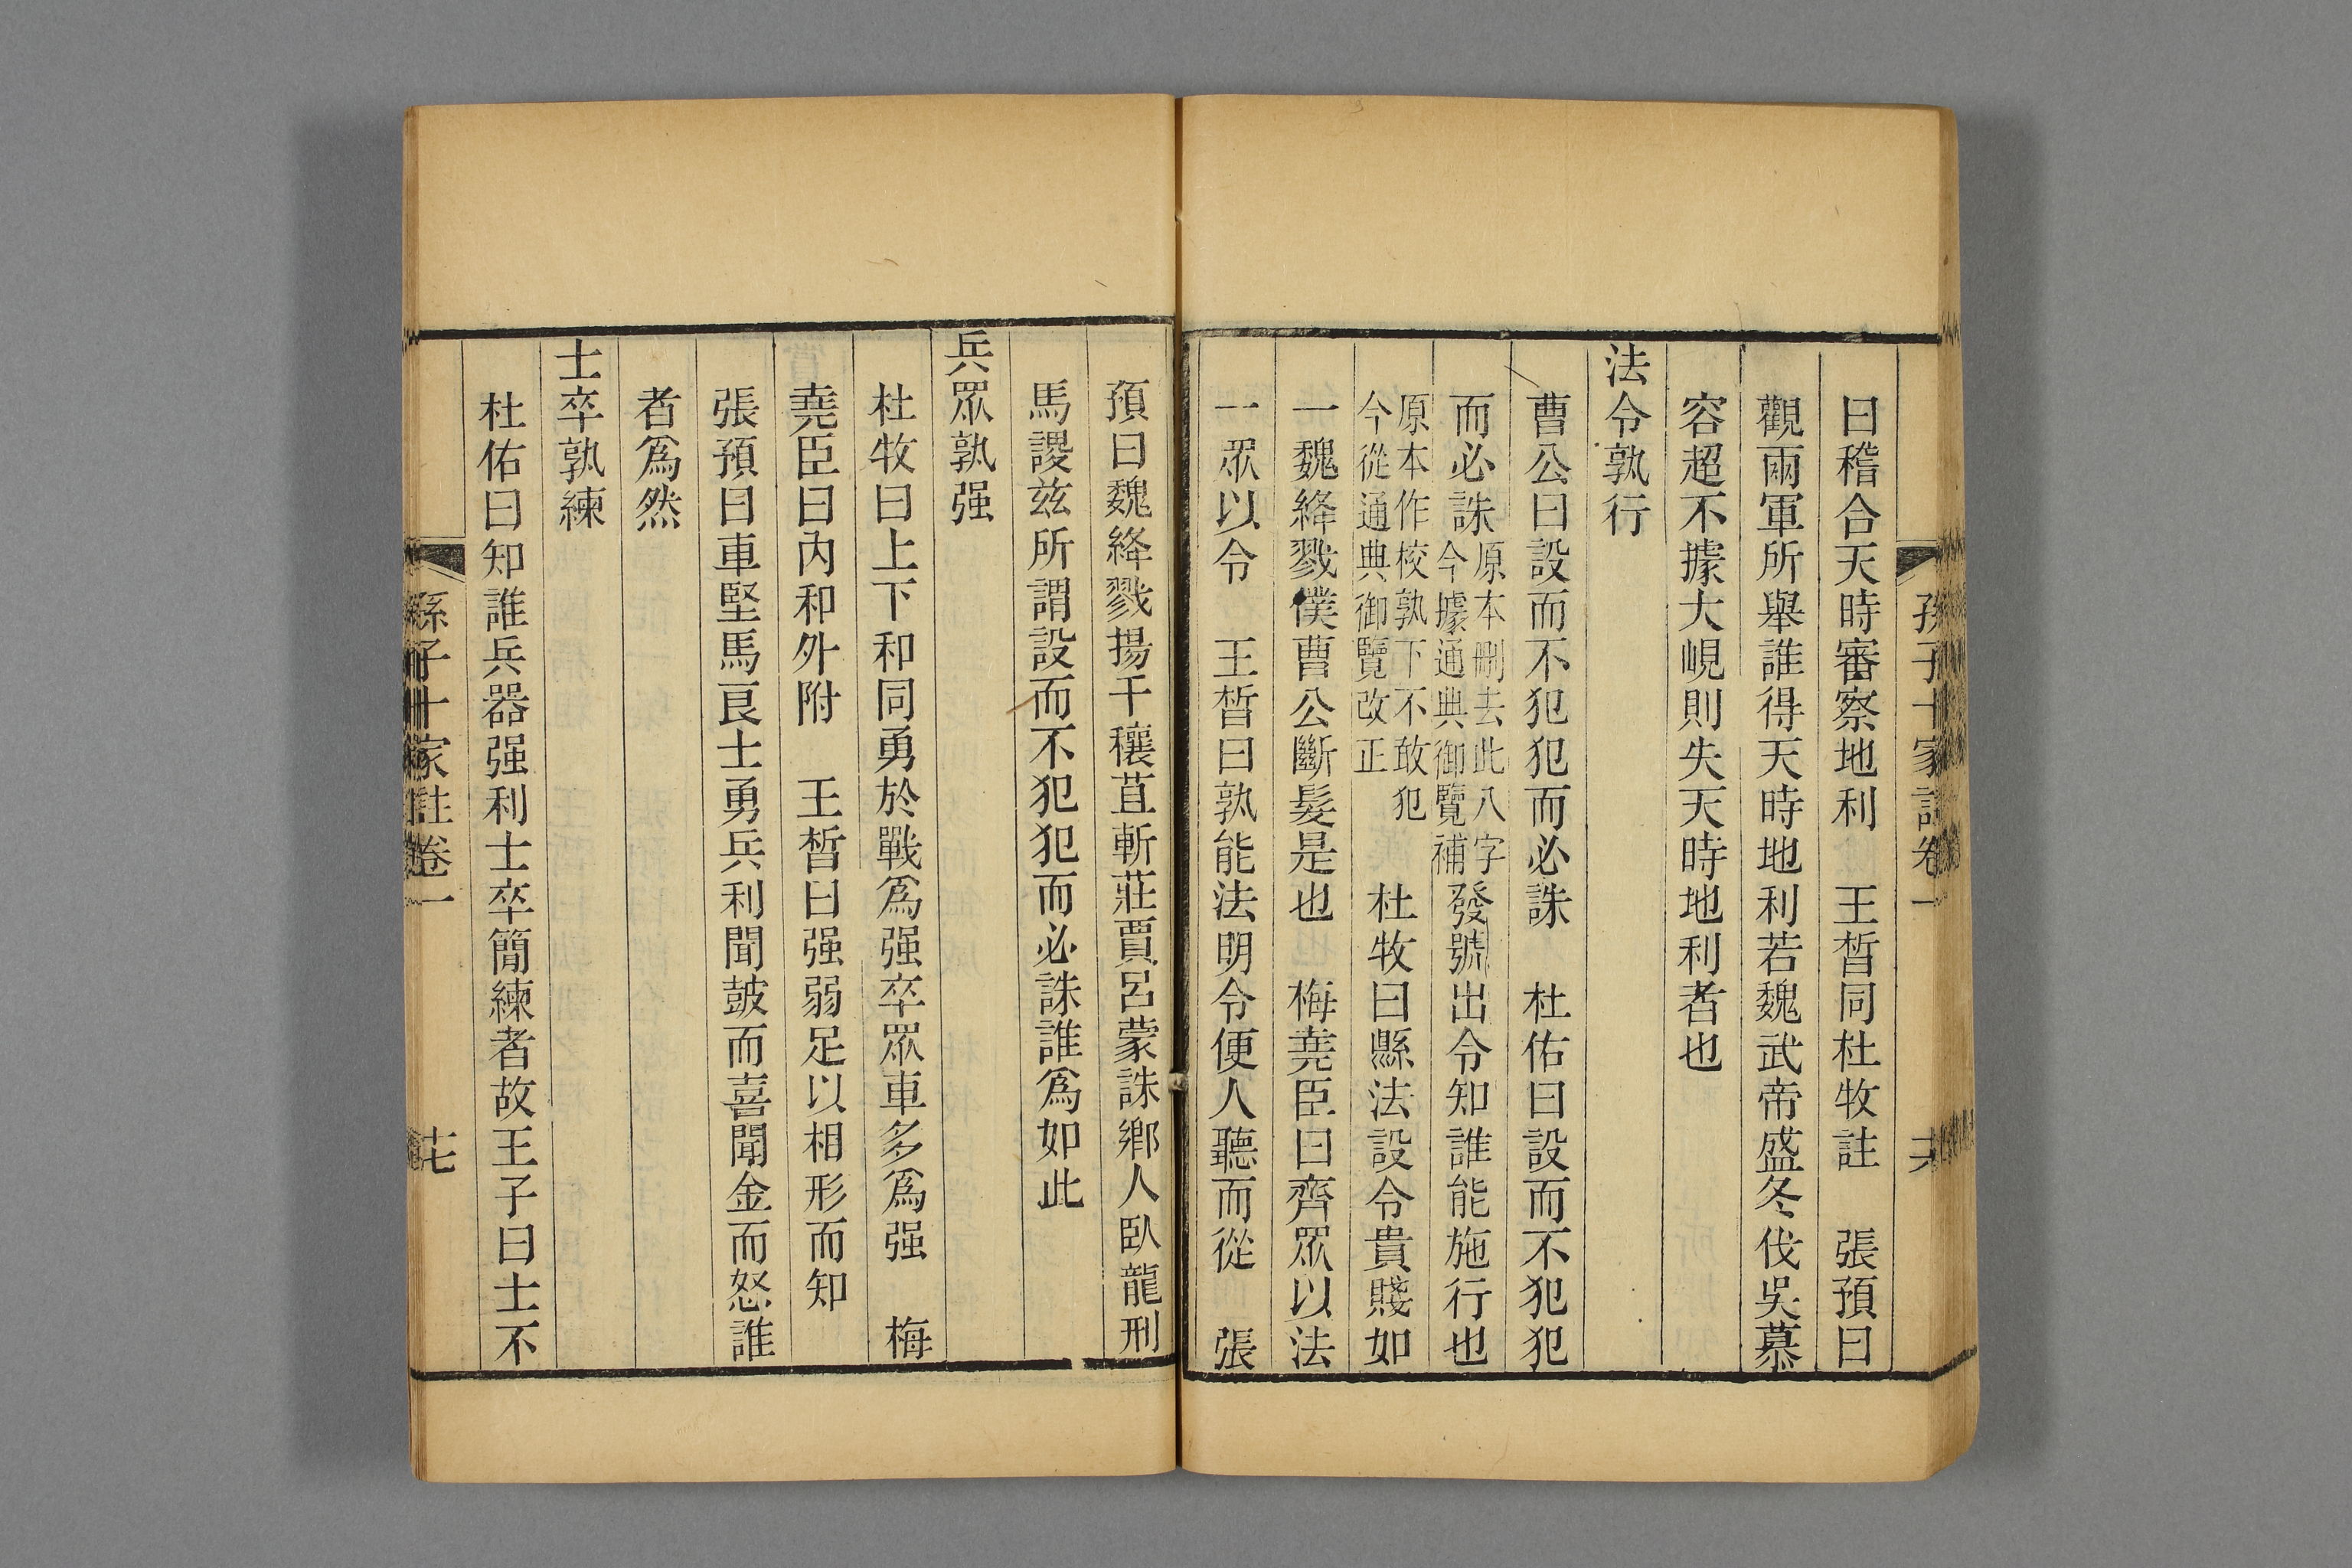 孫子十家註卷一 十六
曰稽合天時審察地利 王晳同杜牧註 張預曰
觀兩軍所舉誰得天時地利若魏武帝盛冬伐吳慕
容超不據大峴則失天時地利者也
法令孰行
曹公曰設而不犯犯而必誅 杜佑曰設而不犯犯
而必誅原本刪去此八字今據通典御覽補發號出令知誰能施行也
原本作校孰下不敢犯今從通典御覽改正 杜牧曰縣法設令貴賤如
一魏絳戮僕曹公斷髮是也 梅堯臣曰齊眾以法
一眾以令 王晳曰孰能法明令便人聽而從 張
預曰魏絳戮揚干穰苴斬莊賈呂蒙誅鄉人臥龍刑
馬謖兹所謂設而不犯犯而必誅誰爲如此
兵眾孰强
杜牧曰上下和同勇於戰爲强卒眾車多爲强 梅
堯臣曰內和外附 王晳曰强弱足以相形而知
張預曰車堅馬良士勇兵利聞鼓而喜聞金而怒誰
者爲然
士卒孰練
杜佑曰知誰兵器强利士卒簡練者故王子曰士不
孫子十家註卷一 十七